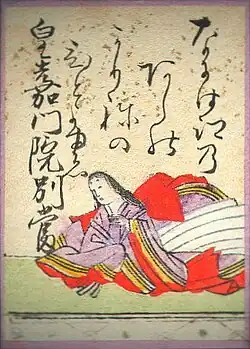 なには江乃
あしの
かりねの
ひとよゆへ
皇嘉門院別當